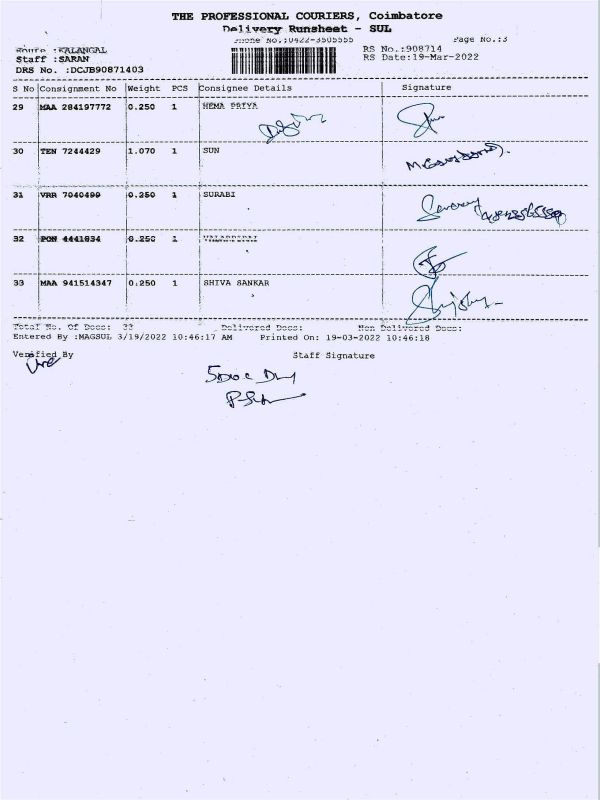 THE PROFESSIONAL COURIERS, Coimbatore
Delivery Runsheet - SUL
Phone No.:0422-3505555 Page No.:3
Route :KALANGAL RS No.:908714
Staff :SARAN RS Date:19-Mar-2022
DRS No. :DCJB90871403
S No Consignment No Weight PCS Consignee Details Signature
29 MAA 284197772 0.250 1 HEMA PRIYA
30 TEN 7244429 1.070 1 SUN
31 VRR 7040499 0.250 1 SURABI
32 PON 4441834 0.250 1
33 MAA 941514347 0.250 1 SHIVA SANKAR
Total No. Of Docs: 33 Delivered Docs: Non Delivered Docs:
Entered By :MAGSUL 3/19/2022 10:46:17 AM Printed On: 19-03-2022 10:46:18
Verified By Staff Signature